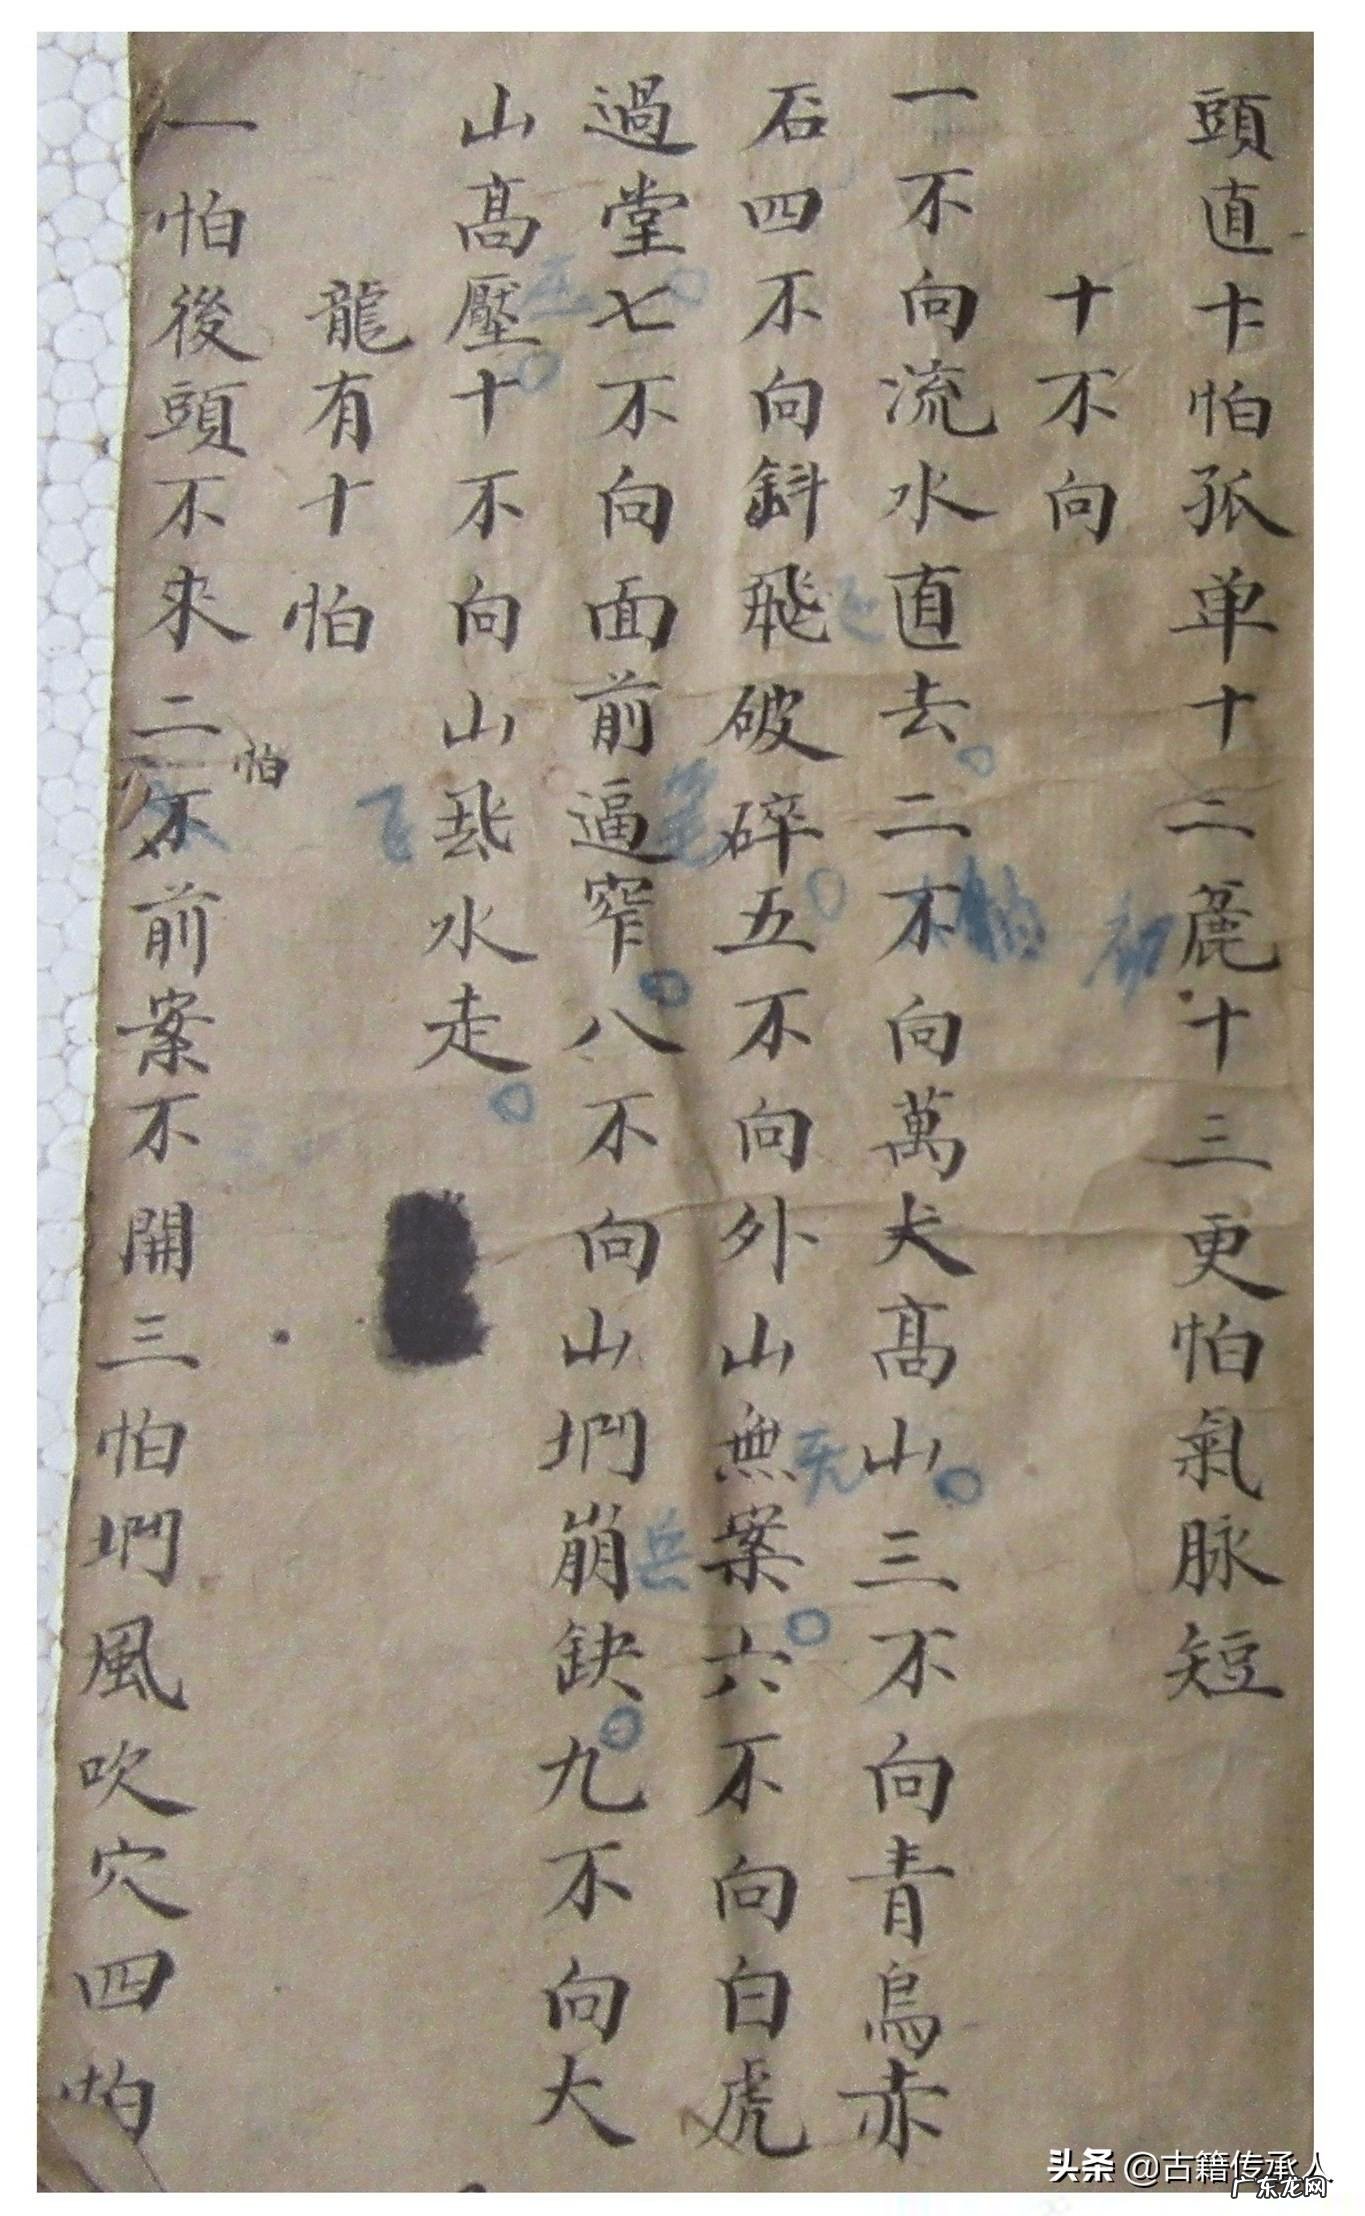 頭直十怕孤单十二麁十三更怕氣脉短
十不向
一不向流水直去二不向萬犬髙山三不向青烏赤
石四不向斜飛破碎五不向外山無案六不向白虎
過堂七不向面前逼窄八不向山坍崩缺九不向大
山髙壓十不向山飛水走
龍有十怕
一怕後頭不來二不前案不開三怕坍風吹穴四怕
怕
飞
无
兵
头条 @古籍传承人
广东龙网